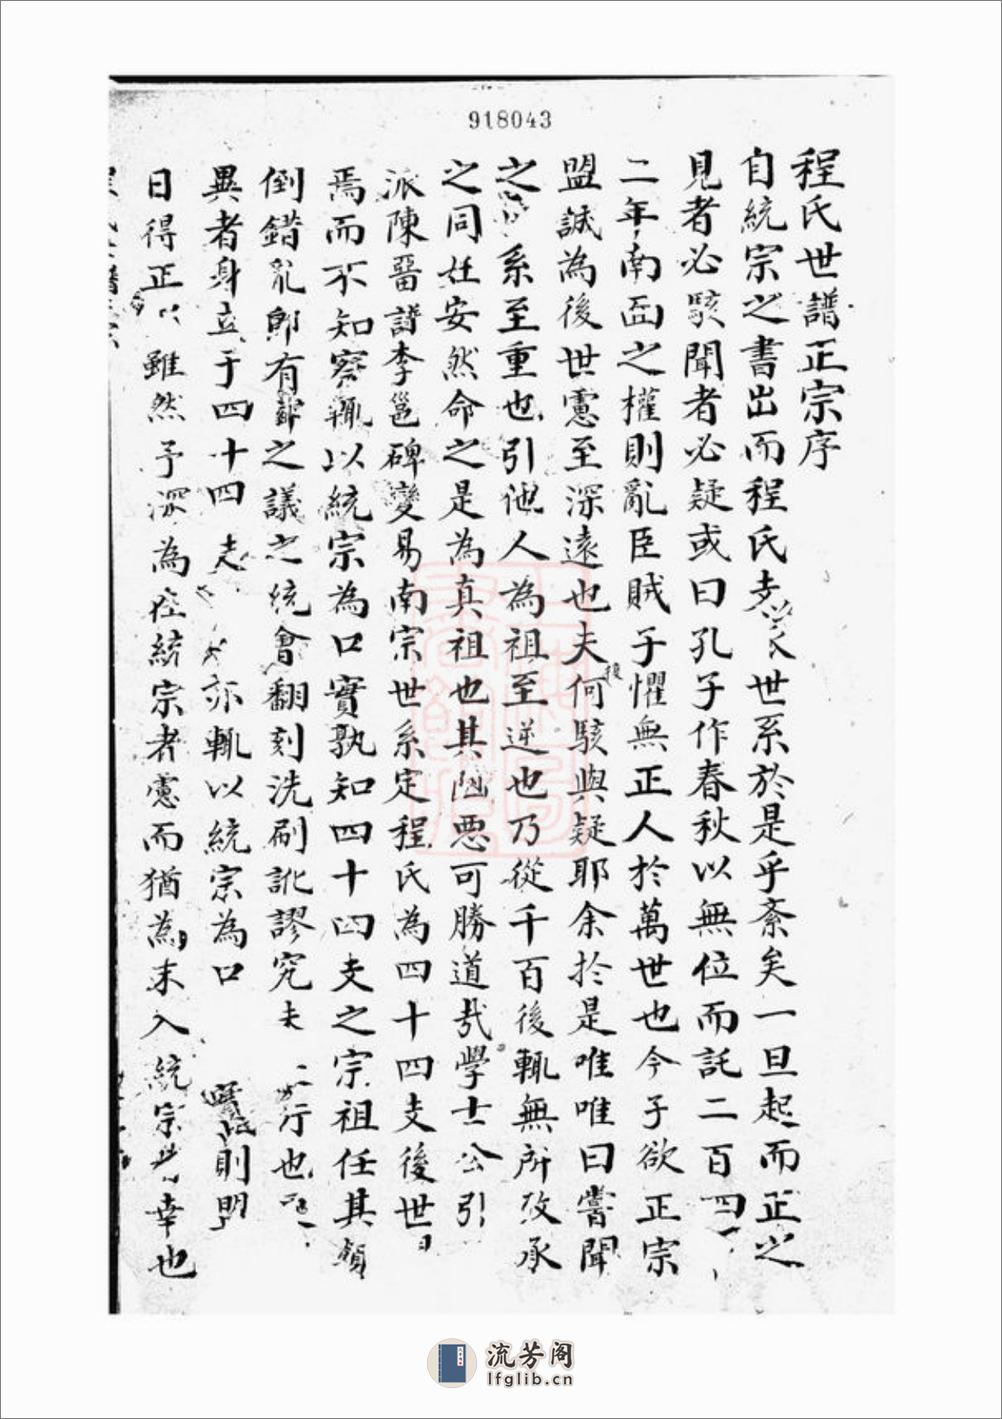 918043
程氏世譜正宗序
自統宗之書出而程氏支世系於是乎紊矣一旦起而正之
見者必駭聞者必疑或曰孔子作春秋以無位而託二百四
二年南面之權則亂臣賊子懼無正人於萬世也今子欲正宗
盟誠為後世慮至深遠也夫何駭與疑耶余於是唯唯曰嘗聞
之系至重也引他人為祖至逆也乃從千百後輒無所攷承
之同妊安然命之是為真祖也其惡可勝道哉學士公引
派陳留譜李邕碑變易南宗世系定程氏為四十四支後世
焉而不知察輒以統宗為口實孰知四十四支之宗祖任其顛
倒錯亂即有辭之議之統會翻刻洗刷訛謬究夫行也
異者身立于四十四支亦輒以統宗為口實則
日得正雖然予深為在統宗者慮而猶為未入統宗幸也
流芳阁
lfglib.cn